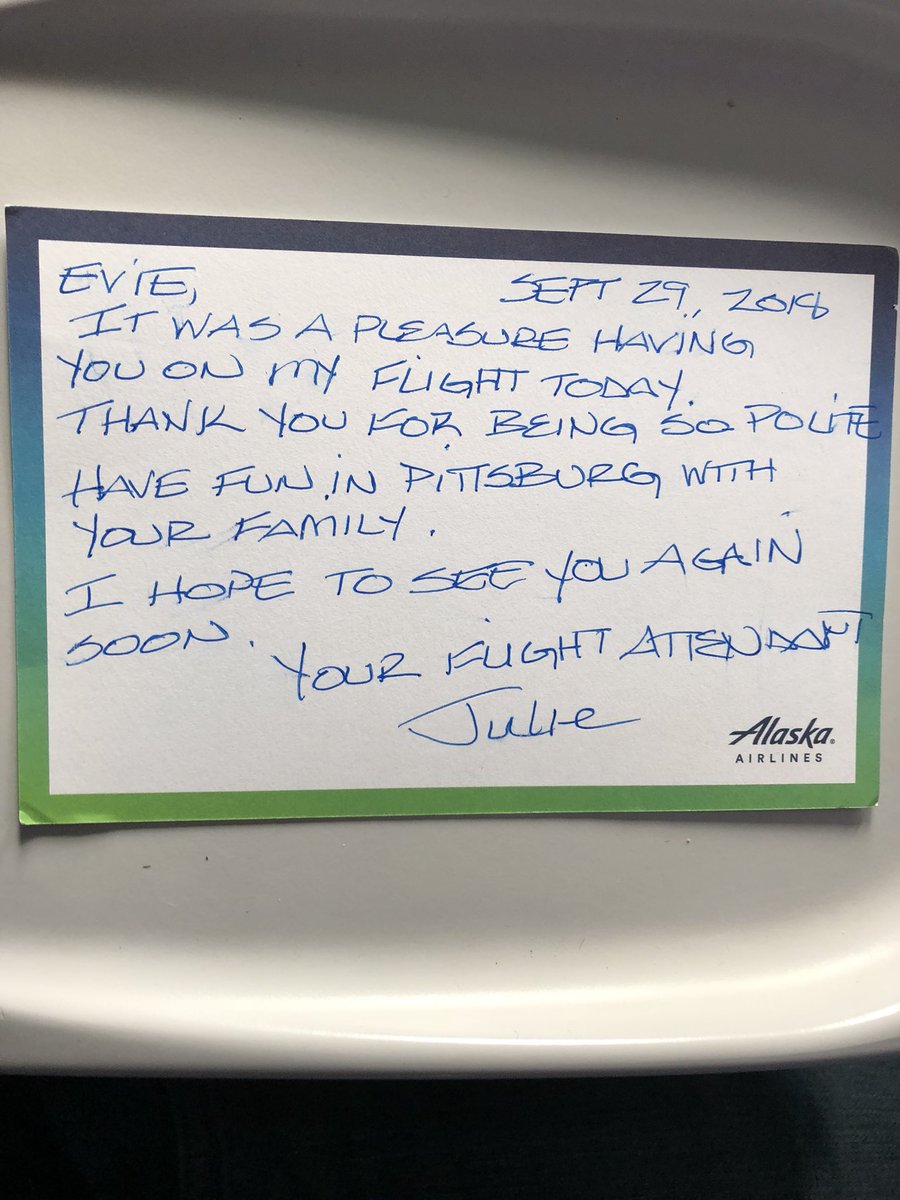 EVIE, SEPT 29., 2018
IT WAS A PLEASURE HAVING
YOU ON MY FLIGHT TODAY.
THANK YOU FOR BEING SO POLITE
HAVE FUN IN PITTSBURG WITH
YOUR FAMILY.
I HOPE TO SEE YOU AGAIN
SOON.
YOUR FLIGHT ATTENDANT
Julie
Alaska®
AIRLINES